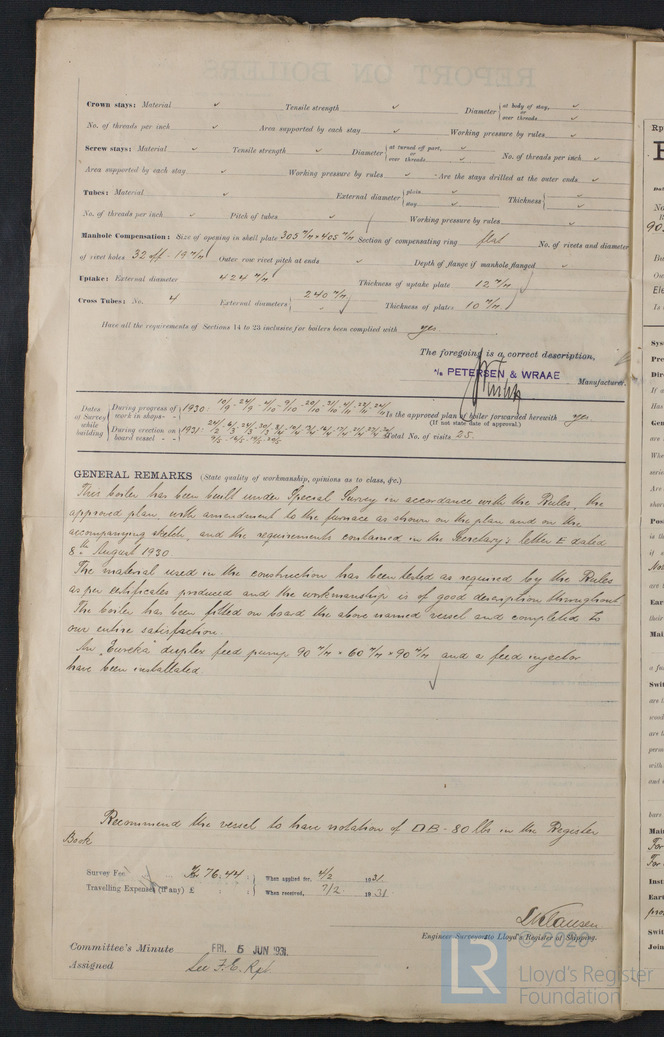 Crown stays: Material ✓ Tensile strength ✓ Diameter { at body of stay, ✓ or over threads ✓
No. of threads per inch ✓ Area supported by each stay ✓ Working pressure by rules ✓
Screw stays: Material ✓ Tensile strength ✓ Diameter { at turned off part, ✓ or over threads ✓ No. of threads per inch ✓
Area supported by each stay ✓ Working pressure by rules ✓ Are the stays drilled at the outer ends ✓
Tubes: Material ✓ External diameter { plain ✓ stay ✓ Thickness { ✓
No. of threads per inch ✓ Pitch of tubes ✓ Working pressure by rules ✓
Manhole Compensation: Size of opening in shell plate 303 m/m × 405 m/m Section of compensating ring flat No. of rivets and diameter
of rivet holes 32 off - 19 m/m Outer row rivet pitch at ends ✓ Depth of flange if manhole flanged ✓
Uptake: External diameter 424 m/m Thickness of uptake plate 12 m/m
Cross Tubes: No. 4 External diameters { 240 m/m Thickness of plates 10 m/m
Have all the requirements of Sections 14 to 23 inclusive for boilers been complied with yes
The foregoing is a correct description,
A/S PETERSEN & WRAAE Manufacturer.
Dates of Survey while building
During progress of work in shops - - 1930:
Is the approved plan of boiler forwarded herewith yes
(If not state date of approval.)
During erection on board vessel - - - 1931:
Total No. of visits 25.
GENERAL REMARKS (State quality of workmanship, opinions as to class, &c.)
This boiler has been built under Special Survey in accordance with the Rules, the
approved plan, with amendment to the furnace as shown on the plan and on the
accompanying sketch, and the requirements contained in the Secretary's letter E dated
8th August 1930
The material used in the construction has been tested as required by the Rules
as per certificates produced and the workmanship is of good description throughout
The boiler has been fitted on board the above named vessel and completed to
our entire satisfaction.
An "Eureka" duplex feed pump 90 m/m × 60 m/m × 90 m/m and a feed injector
have been installated.
Recommend the vessel to have notation of DB - 80 lbs in the Register
Book
Survey Fee Kr 76.44 When applied for, 4/2 1931.
Travelling Expenses (if any) £ When received, 7/2 1931
Engineer Surveyor to Lloyd's Register of Shipping.
Committee's Minute FRI. 5 JUN 1931
Assigned See F.E. Rpt
© 2020
LR Lloyd's Register
Foundation